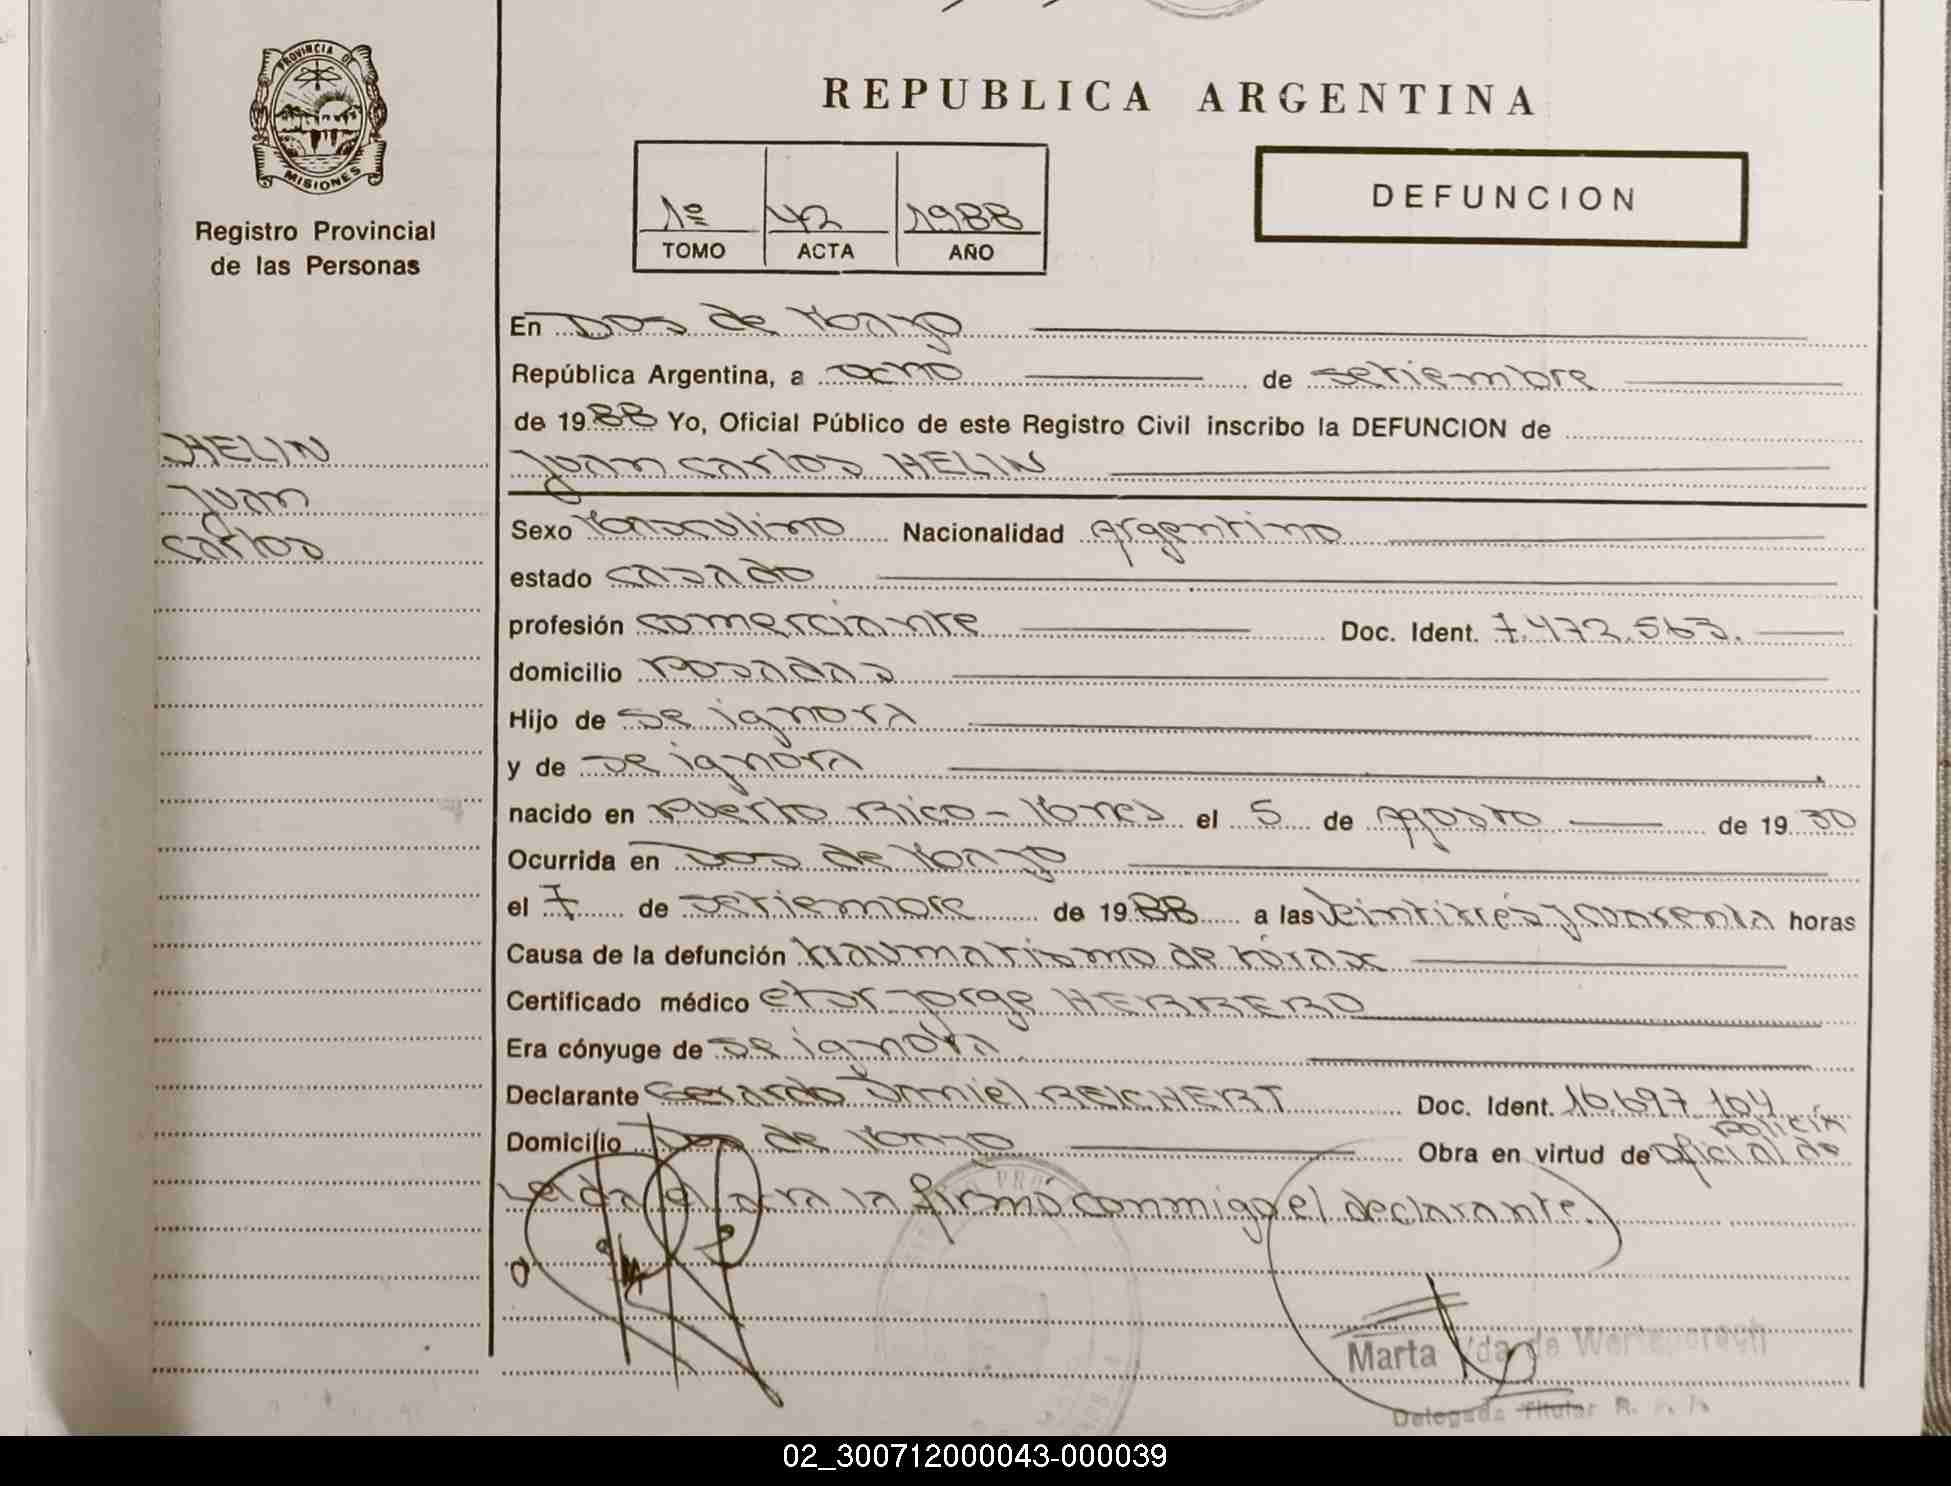 PROVINCIA DE
MISIONES
Registro Provincial
de las Personas
HELIN
Juan
Carlos
REPUBLICA ARGENTINA
1º 42 1988
TOMO ACTA AÑO
DEFUNCION
En Dos de Mayo
República Argentina, a ocho de setiembre
de 1988 Yo, Oficial Público de este Registro Civil inscribo la DEFUNCION de
Juan Carlos HELIN
Sexo Masculino Nacionalidad Argentino
estado casado
profesión comerciante Doc. Ident. 7.472.563.
domicilio Posadas
Hijo de se ignora
y de se ignora
nacido en Puerto Rico - Mnes el 5 de Agosto de 1930
Ocurrida en Dos de Mayo
el 7 de setiembre de 1988 a las veintitrés y cuarenta horas
Causa de la defunción traumatismo de tórax
Certificado médico Jorge HERRERO
Era cónyuge de se ignora
Declarante Gerardo Daniel REICHERT Doc. Ident. 16.697.104
Domicilio Dos de Mayo Obra en virtud de oficial de policía
Leída el acta la firmó conmigo el declarante.
Marta Vda de
Delegada Titular R. P. P.
02_300712000043-000039